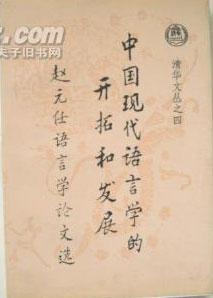 清华文丛之四
中国现代语言学的
开拓和发展
赵元任语言学论文选
.com
夫子旧书网